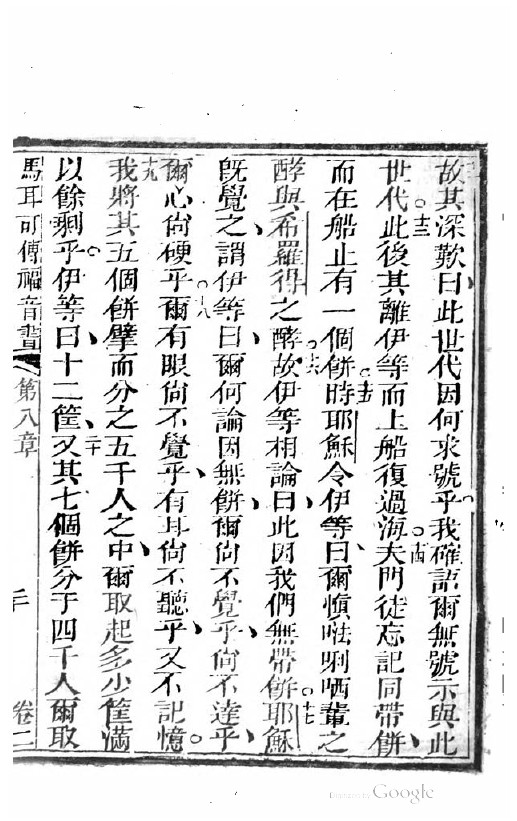 故其深歎曰、此世代因何求號乎。我確語爾無號示與此
世代。十三此後其離伊等而上船復過海。十四夫門徒忘記同帶餅、
而在船止有一個餅。十五時耶穌令伊等曰、爾慎𠵽唎哂輩之
酵與希羅得之酵。十六故伊等相論曰、此因我們無帶餅。十七耶穌
既覺之、謂伊等曰、爾何論因無餅、爾尚不覺乎、尚不達乎、
爾心尚硬乎。十八爾有眼尚不覺乎、有耳尚不聽乎、又不記憶。
十九我將其五個餅擘而分之五千人之中、爾取起多少筐滿
以餘剩乎。伊等曰、十二筐、二十又其七個餅分于四千人爾取
馬耳可傳福音書 第八章 三 卷二
Digitized by Google